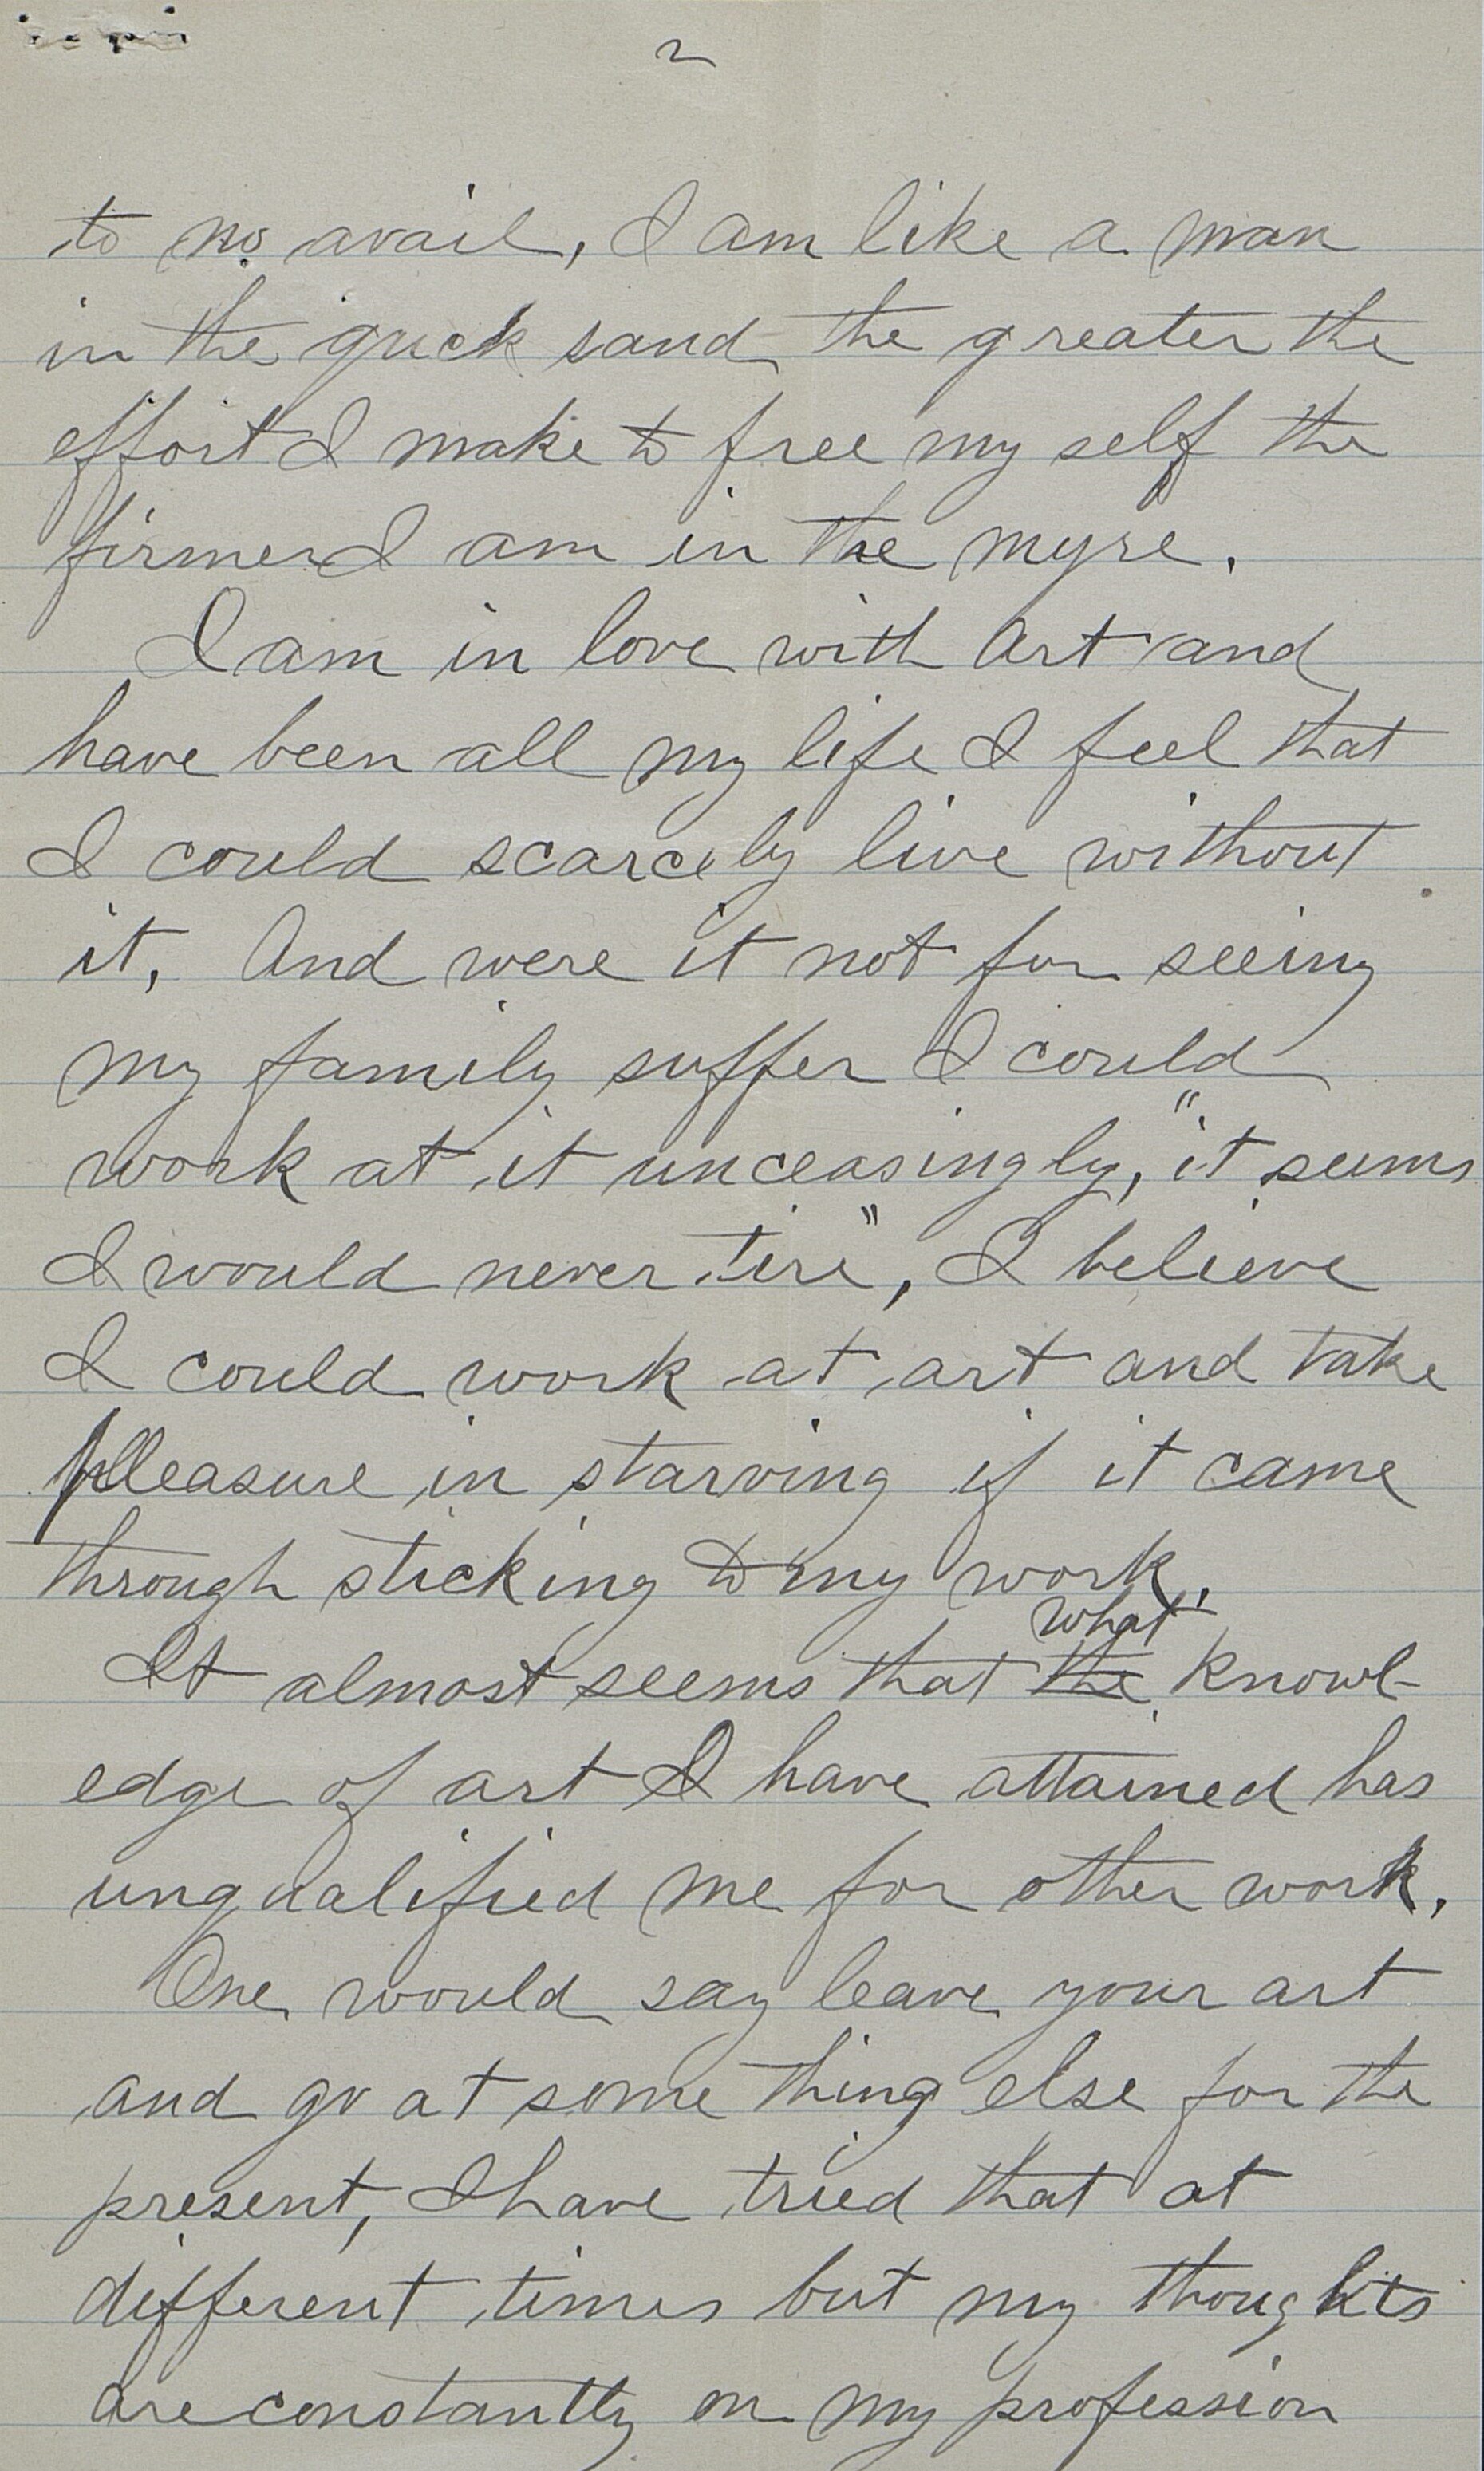 2
to no avail, I am like a man
in the quick sand the greater the
effort I make to free my self the
firmer I am in the myre.
I am in love with Art and
have been all my life I feel that
I could scarcely live without
it, And were it not for seeing
my family suffer I could
work at it unceasingly, "it seems
I would never tire", I believe
I could work at art and take
pleasure in starving if it came
through sticking to my work.
what
It almost seems that the knowl-
edge of art I have attained has
unqualified me for other work.
One would say leave your art
and go at some thing else for the
present, I have tried that at
different times but my thoughts
are constantly on my profession